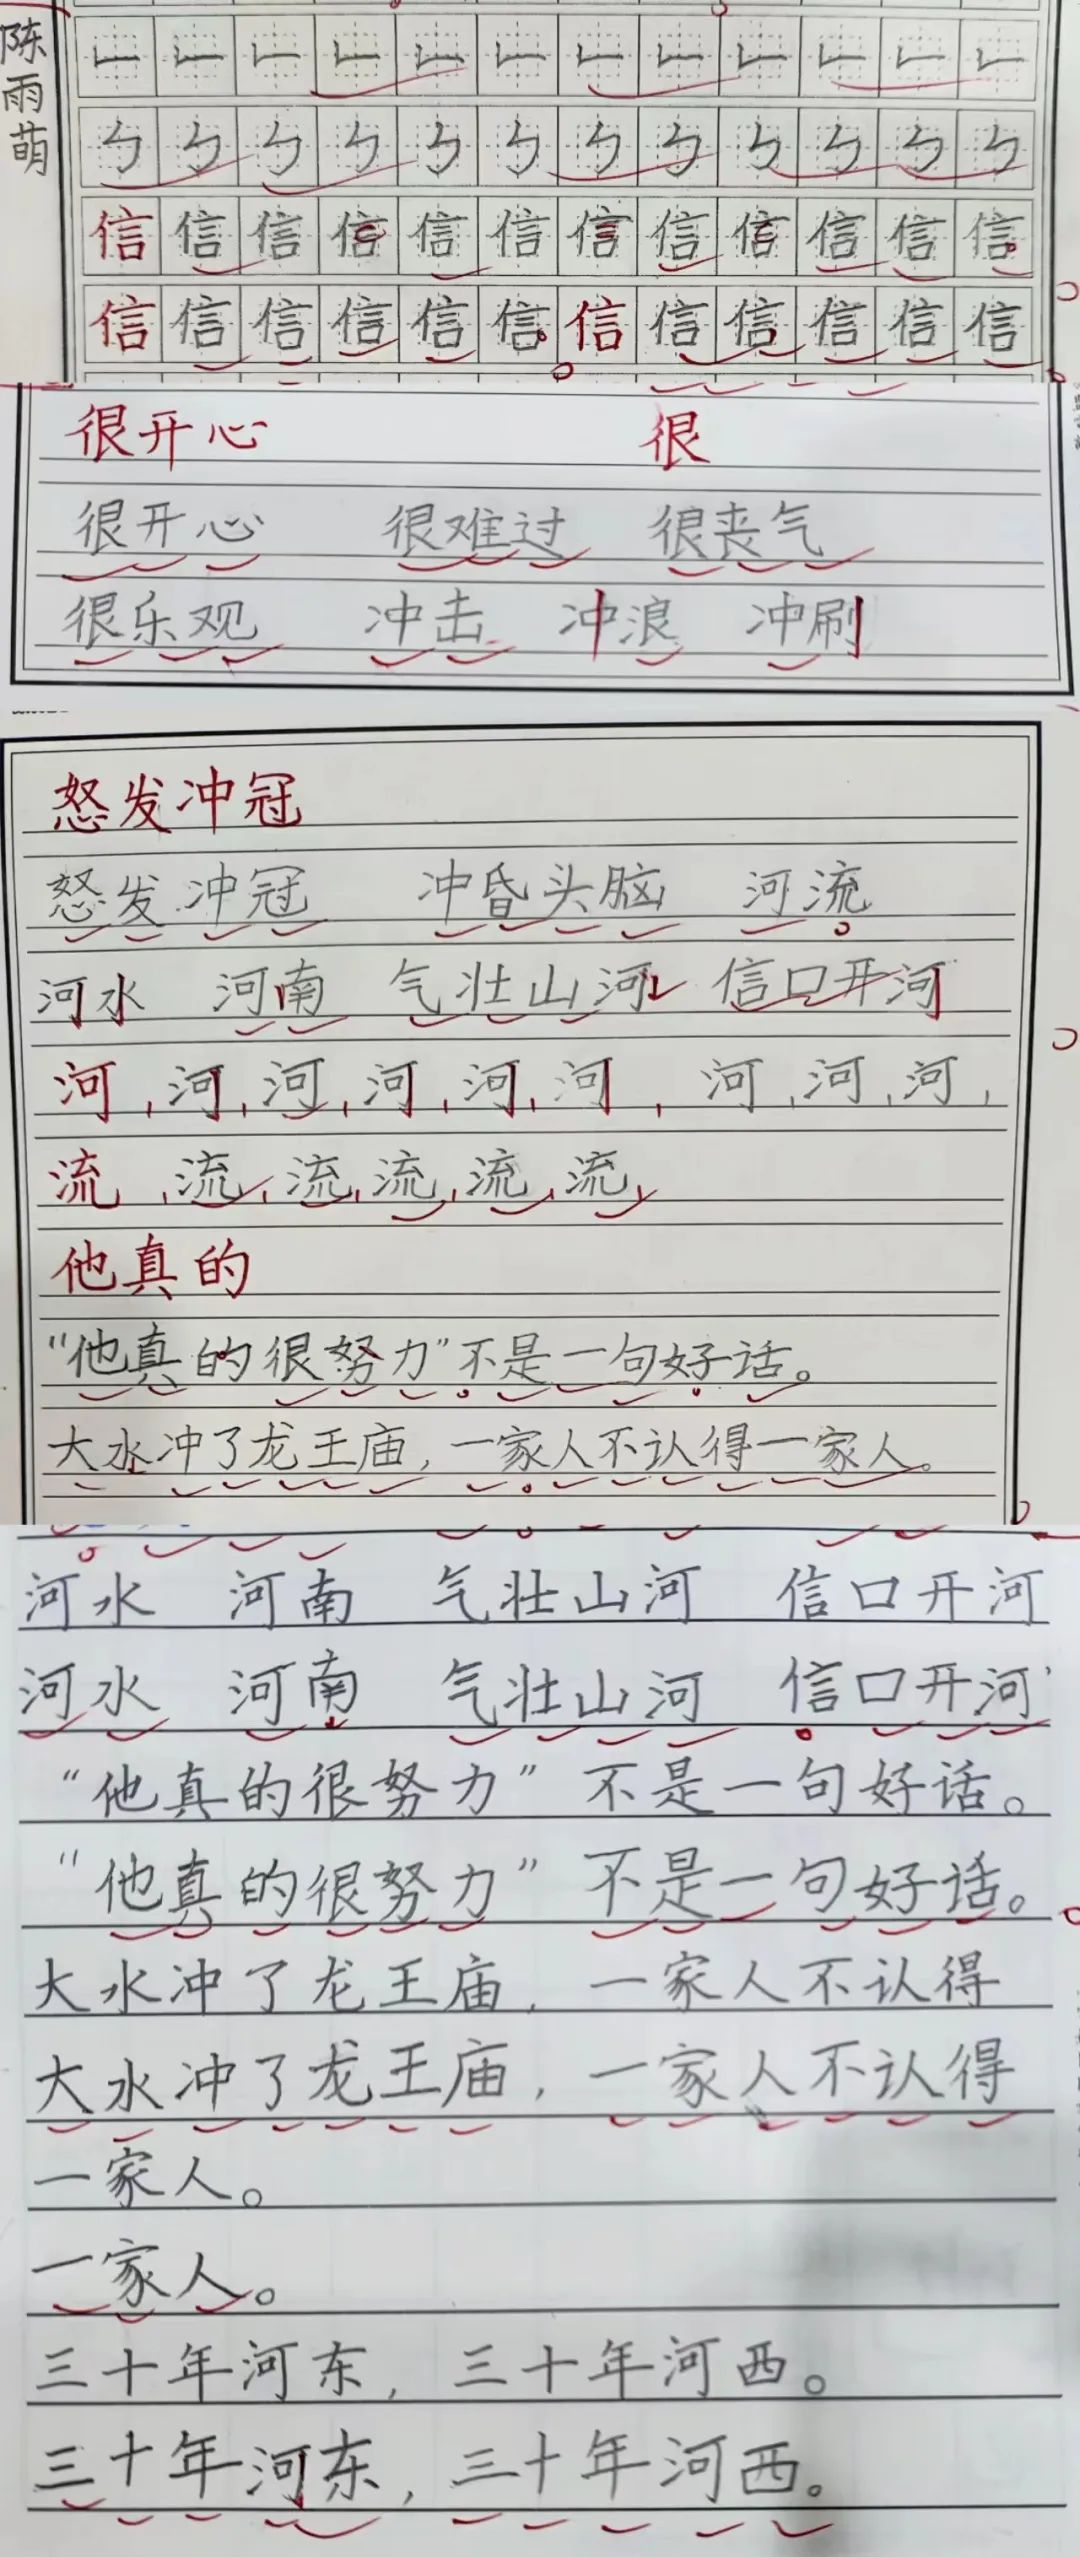 陈雨萌
信信信信信信信信信信信信
信信信信信信信信信信信信
很开心 很
很开心 很难过 很丧气
很乐观 冲击 冲浪 冲刷
怒发冲冠
怒发冲冠 冲昏头脑 河流
河水 河南 气壮山河 信口开河
河,河,河,河,河,河,河,河,河,
流,流,流,流,流,流,
他真的
“他真的很努力”不是一句好话。
大水冲了龙王庙,一家人不认得一家人。
河水 河南 气壮山河 信口开河
河水 河南 气壮山河 信口开河
“他真的很努力”不是一句好话。
“他真的很努力”不是一句好话。
大水冲了龙王庙,一家人不认得
大水冲了龙王庙,一家人不认得
一家人。
一家人。
三十年河东,三十年河西。
三十年河东,三十年河西。